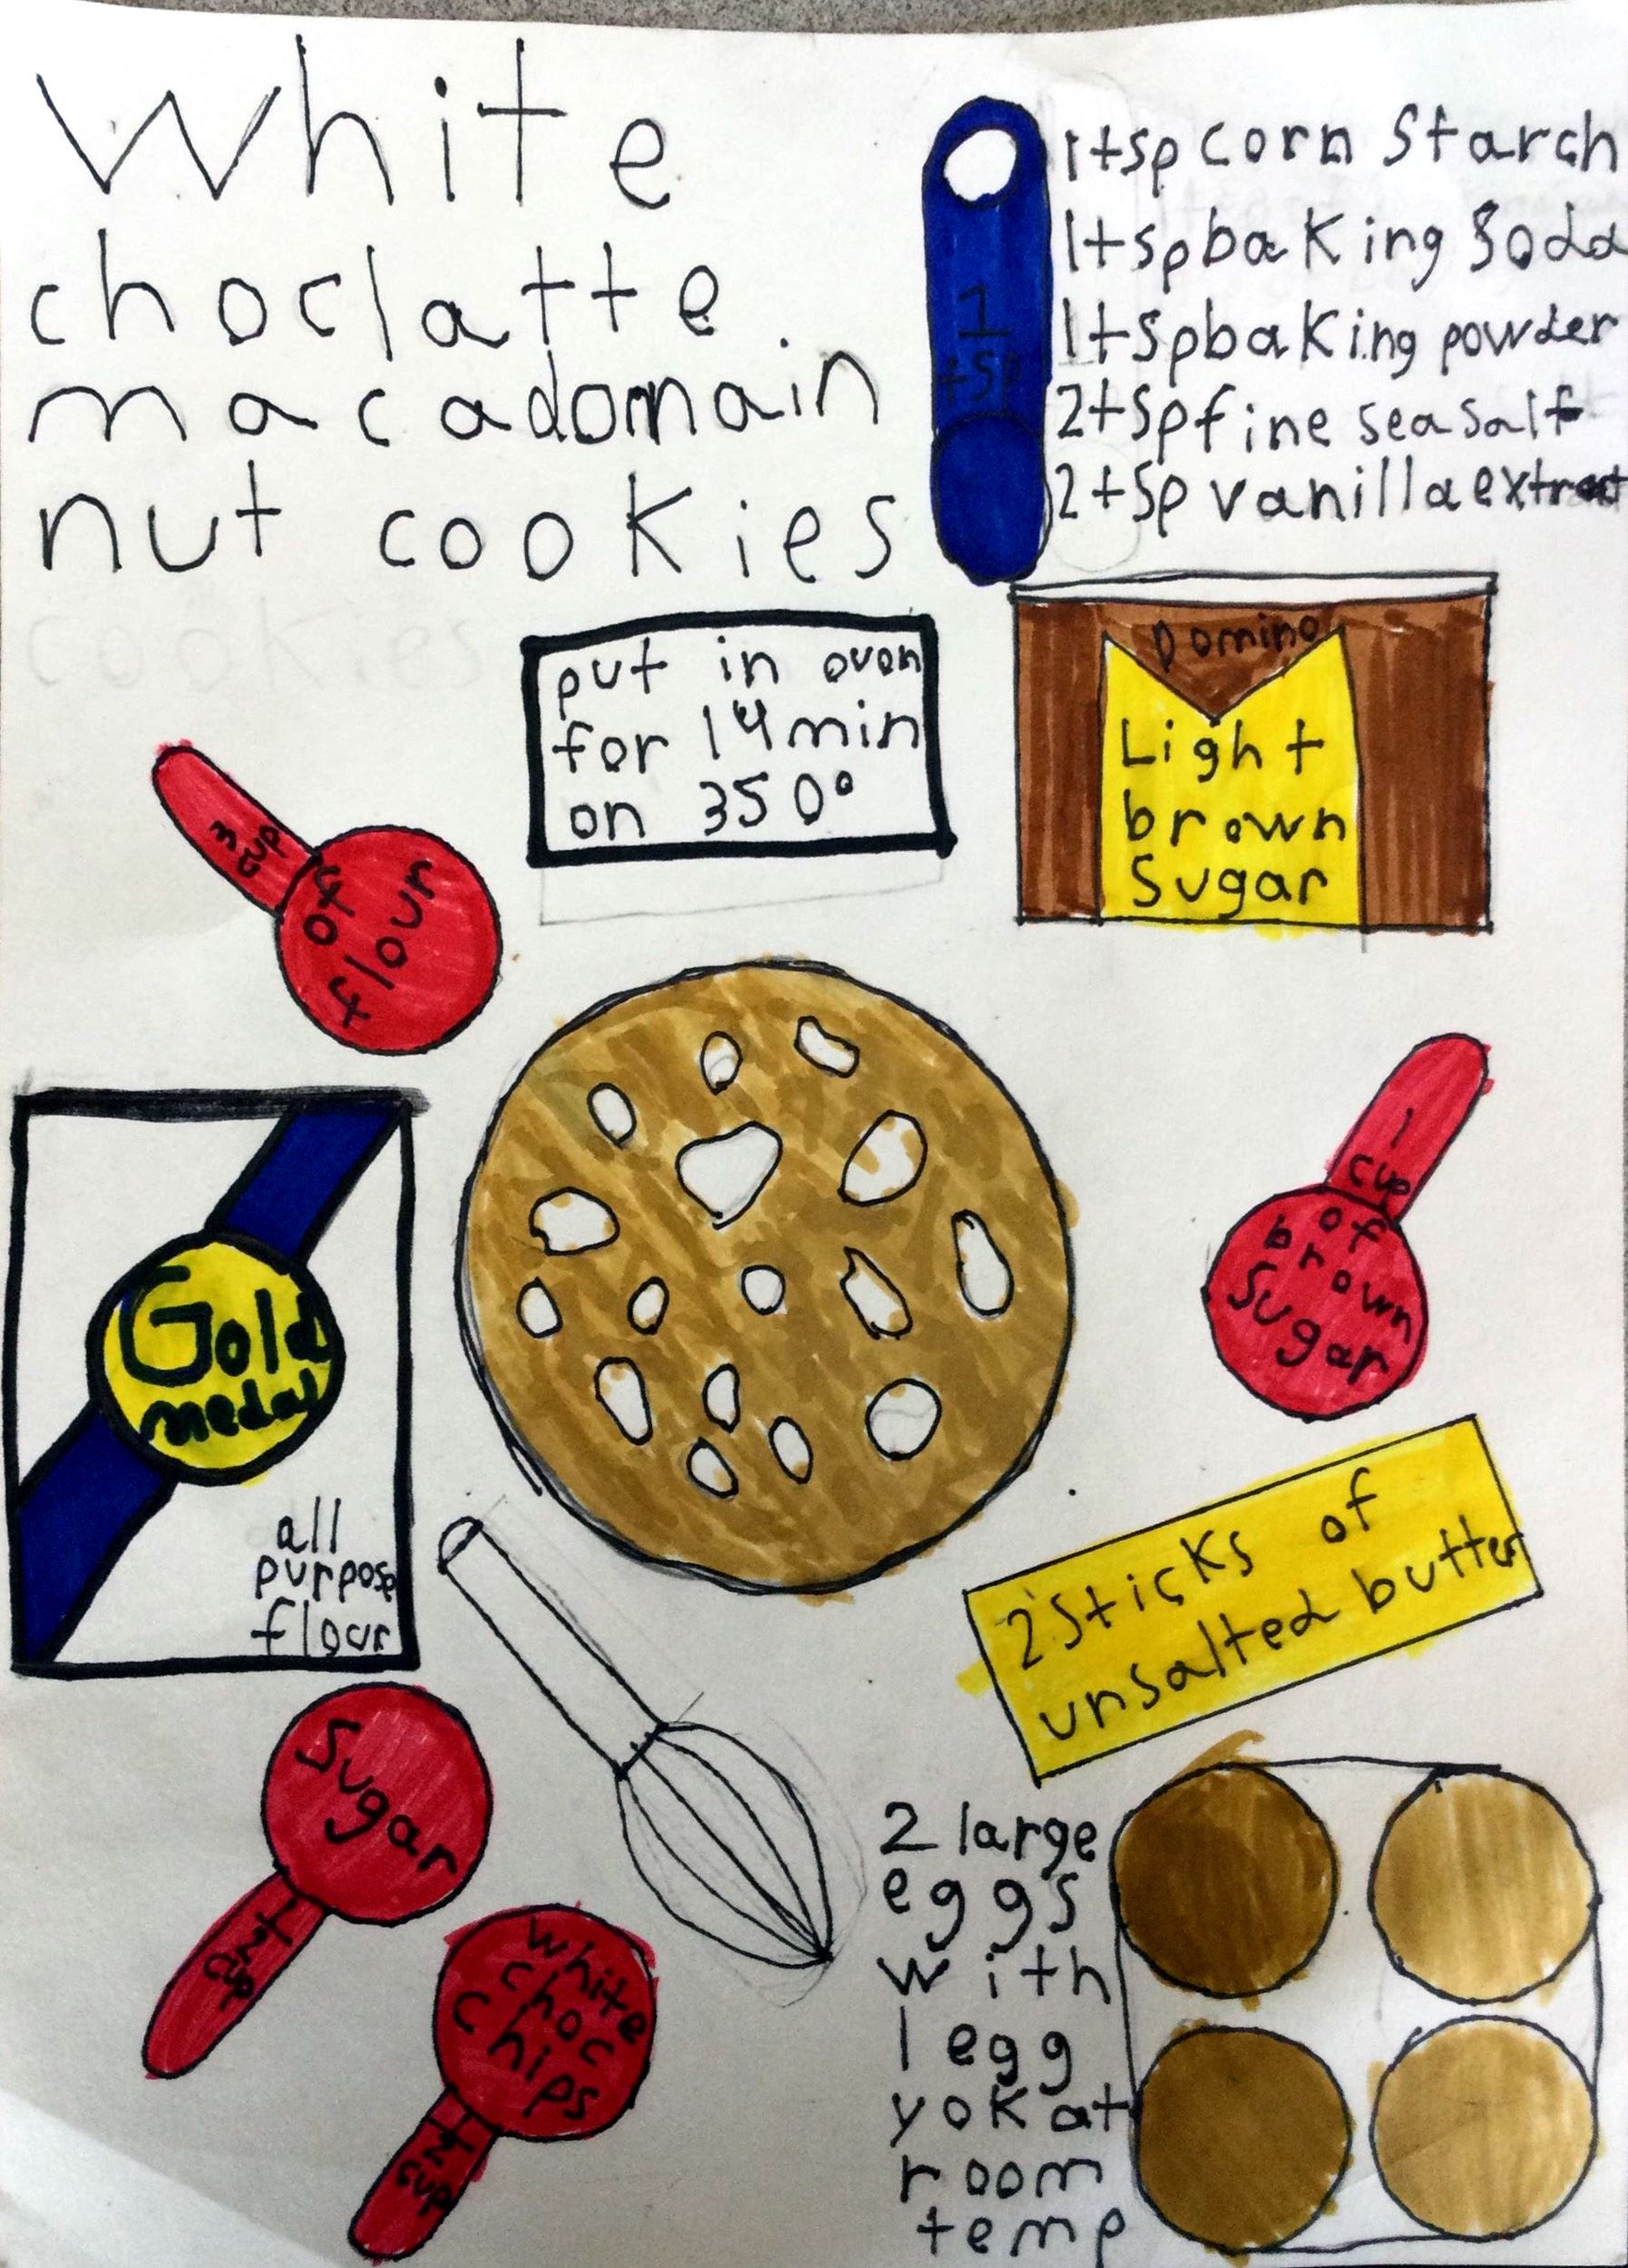 White
choclatte
macadomain
nut cookies
cookies
1
tsp
1tsp corn starch
1tsp baking soda
1tsp baking powder
2tsp fine sea salt
2tsp vanilla extract
put in oven
for 14 min
on 350°
Domino
Light
brown
Sugar
3
cup
of
flour
1
cup
of
brown
Sugar
Gold
medal
all
purpose
flour
2 Sticks of
unsalted butter
Sugar
1/2
cup
white
choc
chips
1/2
cup
2 large
eggs
with
1 egg
yok at
room
temp